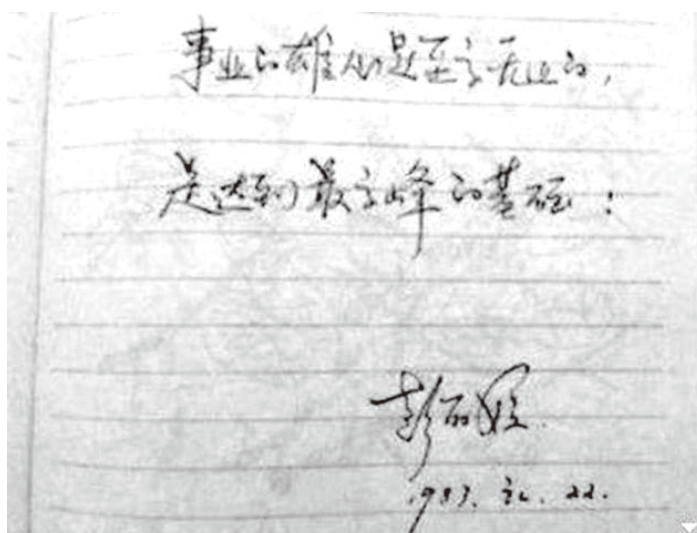 事业的雄心是至高无上的,
是达到最高峰的基础:
彭丽媛
1983. 12. 22.